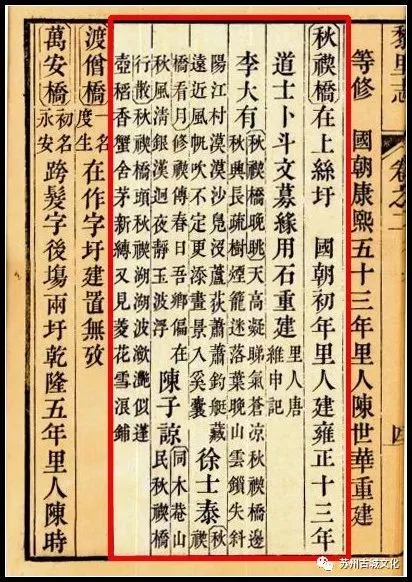 黎里志
卷之二
四
等修　國朝康熙五十三年里人陳世華重建
秋禊橋在上絲圩　國朝初年里人建雍正十三年
道士卜斗文募緣用石重建
里人唐
維申記
李大有
秋禊橋晚眺天高凝睇氣蒼凉秋禊橋邊
秋興長疏樹煙籠迷落葉晚山雲鎖失斜
陽江村漠漠沙鳧沒蘆荻蕭蕭釣艇藏
遠近風帆吹不定更添畫景入奚囊
徐士泰
秋
禊
橋看月修禊傳春日吾鄉偏在
秋風清銀漢迥夜靜玉波浮
陳子諒
同木菴山
民秋禊橋
行散秋禊橋頭秋禊湖湖波瀲灩似蓬
壺稻香蟹舍茅新縛又見菱花雪浪鋪
渡僧橋
一名
度生
在作字圩建置無攷
萬安橋
初名
永安
跨髮字後塲兩圩乾隆五年里人陳時
苏州古城文化